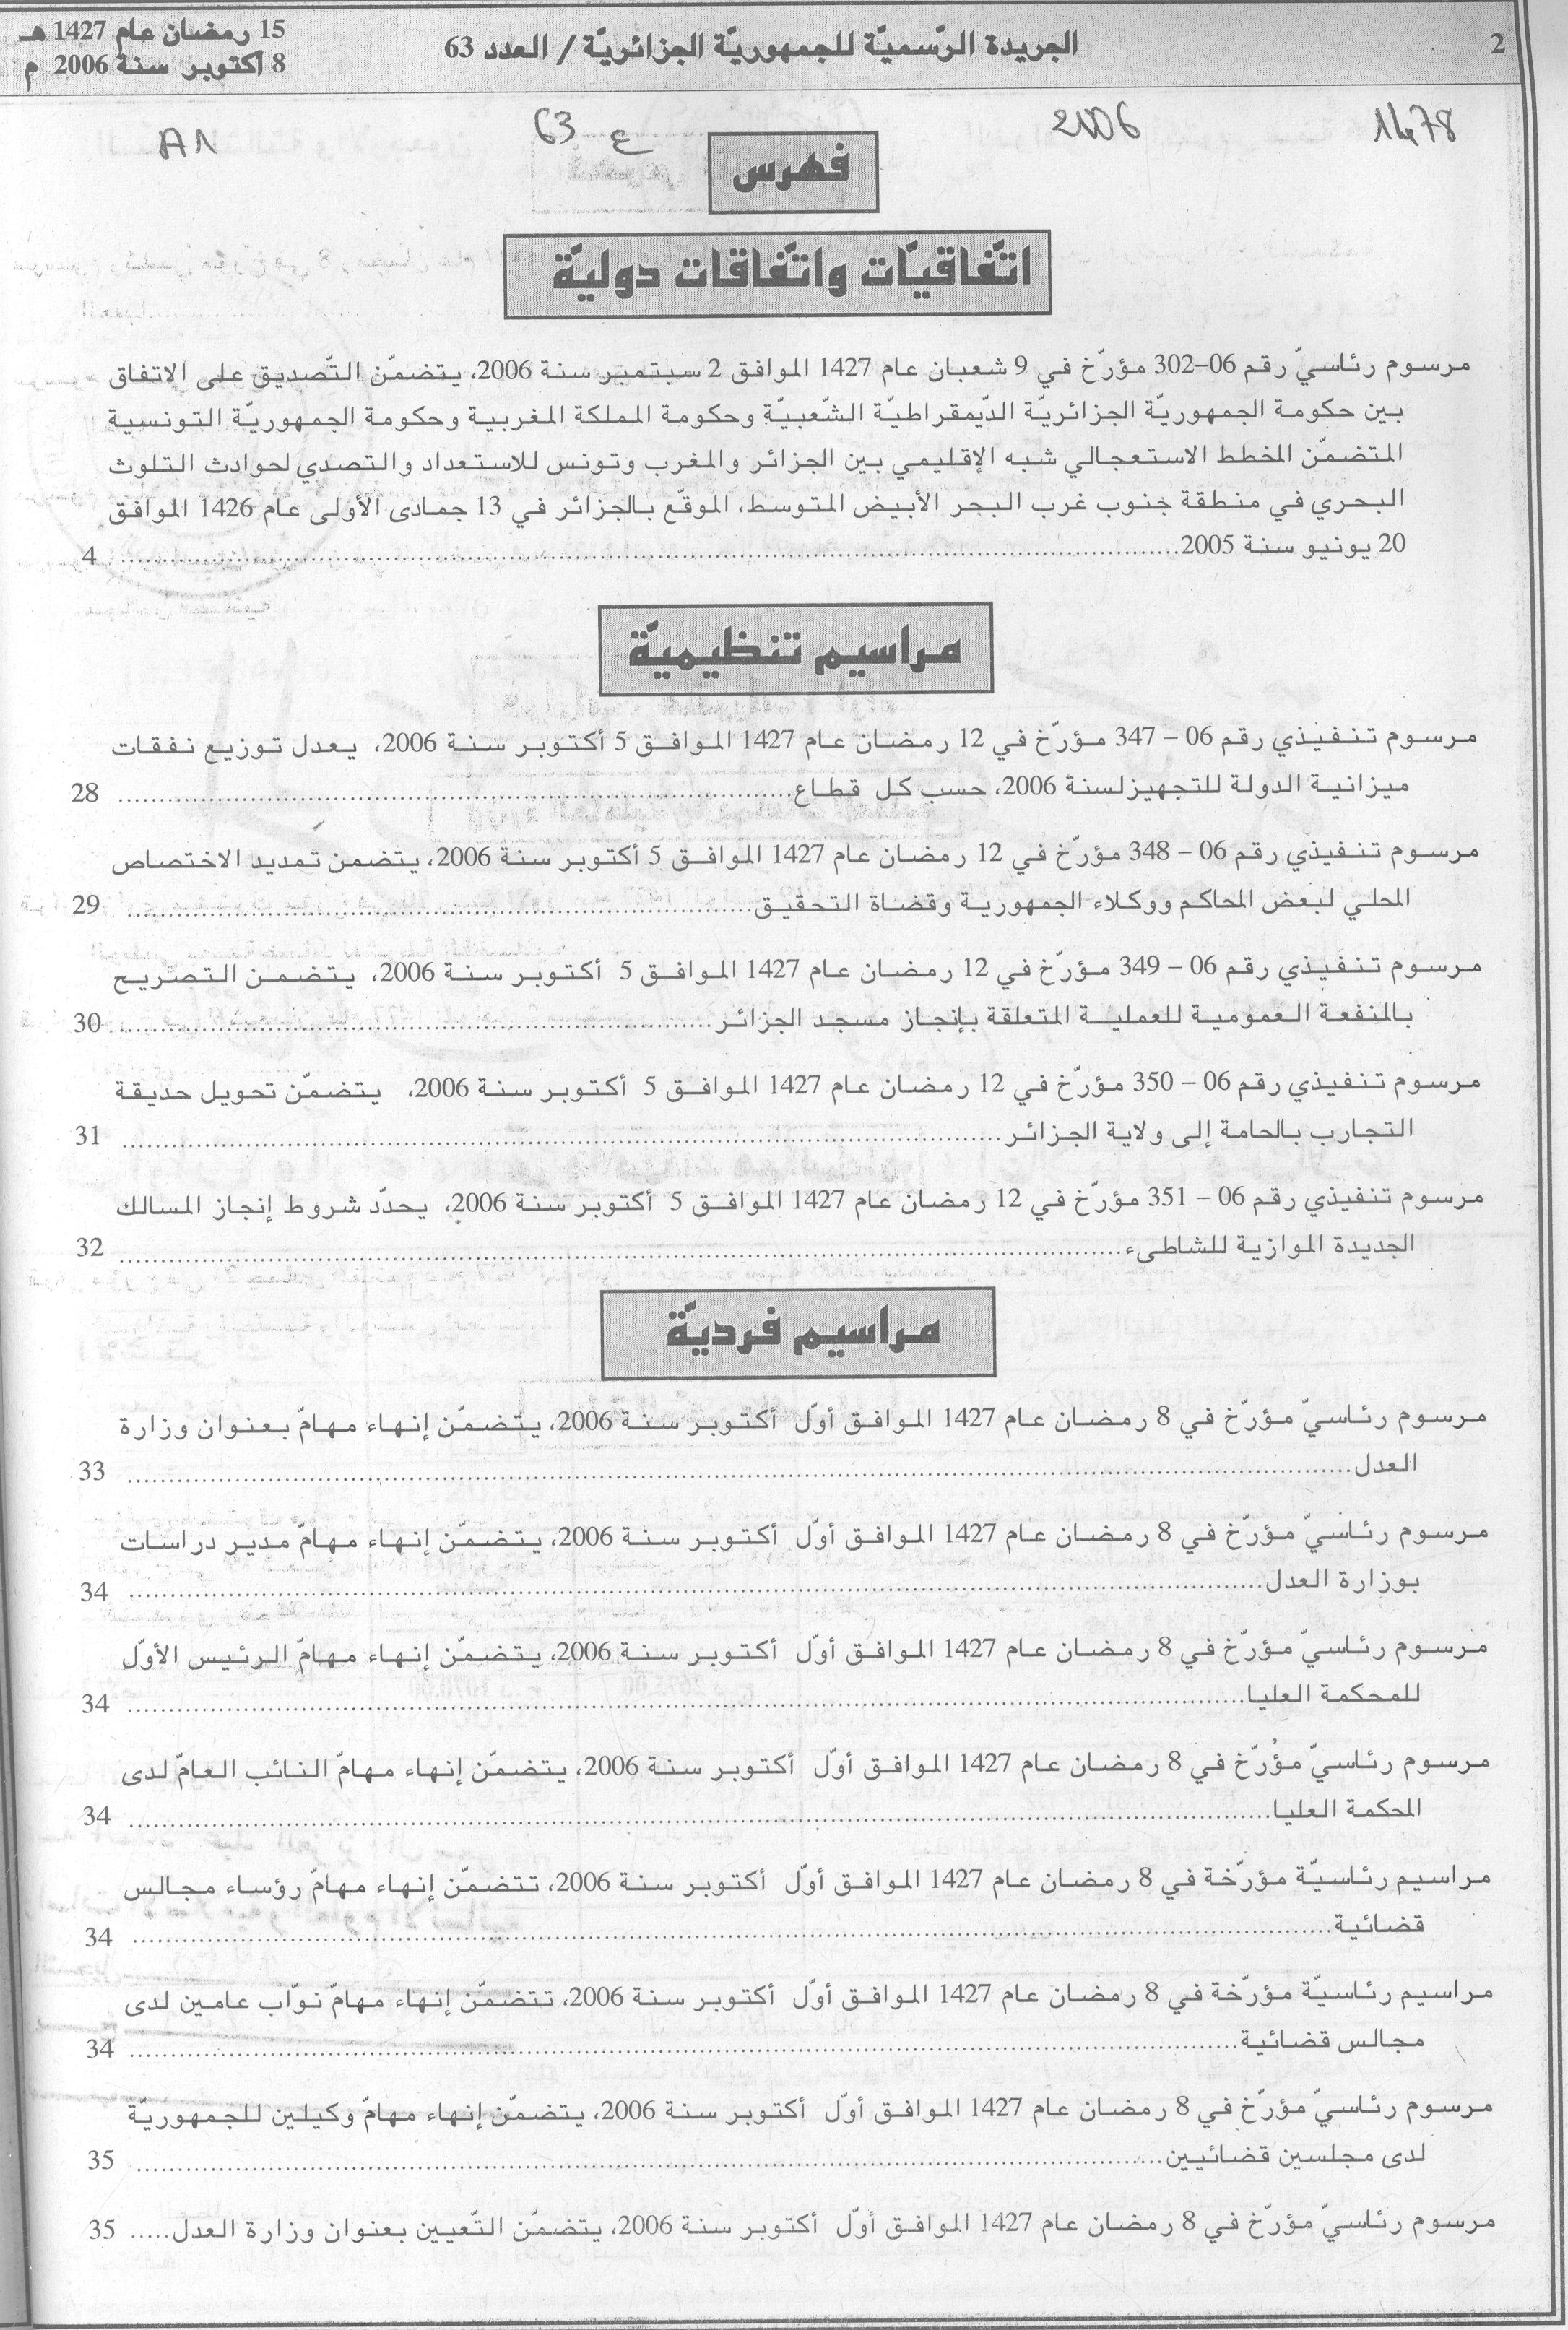 2
الجريدة الرّسميّة للجمهوريّة الجزائريّة / العدد 63
15 رمضان عام 1427 هـ
8 أكتوبر سنة 2006 م
1478
2006
ع 63
A1
فهرس
اتّفاقيّات واتّفاقات دوليّة
مرسوم رئاسيّ رقم 06–302 مؤرّخ في 9 شعبان عام 1427 الموافق 2 سبتمبر سنة 2006، يتضمّن التّصديق على الاتفاق
بين حكومة الجمهوريّة الجزائريّة الدّيمقراطيّة الشّعبيّة وحكومة المملكة المغربية وحكومة الجمهوريّة التونسية
المتضمّن المخطط الاستعجالي شبه الإقليمي بين الجزائر والمغرب وتونس للاستعداد والتصدي لحوادث التلوث
البحري في منطقة جنوب غرب البحر الأبيض المتوسط، الموقّع بالجزائر في 13 جمادى الأولى عام 1426 الموافق
20 يونيو سنة 2005.......... 4
مراسيم تنظيميّة
مرسوم تنفيذي رقم 06 – 347 مؤرّخ في 12 رمضان عام 1427 الموافق 5 أكتوبر سنة 2006، يعدل توزيع نفقات
ميزانية الدولة للتجهيز لسنة 2006، حسب كل قطاع.......... 28
مرسوم تنفيذي رقم 06 – 348 مؤرّخ في 12 رمضان عام 1427 الموافق 5 أكتوبر سنة 2006، يتضمن تمديد الاختصاص
المحلي لبعض المحاكم ووكلاء الجمهورية وقضاة التحقيق.......... 29
مرسوم تنفيذي رقم 06 – 349 مؤرّخ في 12 رمضان عام 1427 الموافق 5 أكتوبر سنة 2006، يتضمن التصريح
بالمنفعة العمومية للعملية المتعلقة بإنجاز مسجد الجزائر.......... 30
مرسوم تنفيذي رقم 06 – 350 مؤرّخ في 12 رمضان عام 1427 الموافق 5 أكتوبر سنة 2006، يتضمّن تحويل حديقة
التجارب بالحامة إلى ولاية الجزائر.......... 31
مرسوم تنفيذي رقم 06 – 351 مؤرّخ في 12 رمضان عام 1427 الموافق 5 أكتوبر سنة 2006، يحدّد شروط إنجاز المسالك
الجديدة الموازية للشاطىء.......... 32
مراسيم فرديّة
مرسوم رئاسيّ مؤرّخ في 8 رمضان عام 1427 الموافق أوّل أكتوبر سنة 2006، يتضمّن إنهاء مهامّ بعنوان وزارة
العدل.......... 33
مرسوم رئاسيّ مؤرّخ في 8 رمضان عام 1427 الموافق أوّل أكتوبر سنة 2006، يتضمّن إنهاء مهامّ مدير دراسات
بوزارة العدل.......... 34
مرسوم رئاسيّ مؤرّخ في 8 رمضان عام 1427 الموافق أوّل أكتوبر سنة 2006، يتضمّن إنهاء مهامّ الرئيس الأوّل
للمحكمة العليا.......... 34
مرسوم رئاسيّ مؤرّخ في 8 رمضان عام 1427 الموافق أوّل أكتوبر سنة 2006، يتضمّن إنهاء مهامّ النائب العامّ لدى
المحكمة العليا.......... 34
مراسيم رئاسيّة مؤرّخة في 8 رمضان عام 1427 الموافق أوّل أكتوبر سنة 2006، تتضمّن إنهاء مهامّ رؤساء مجالس
قضائية.......... 34
مراسيم رئاسيّة مؤرّخة في 8 رمضان عام 1427 الموافق أوّل أكتوبر سنة 2006، تتضمّن إنهاء مهامّ نوّاب عامين لدى
مجالس قضائية.......... 34
مرسوم رئاسيّ مؤرّخ في 8 رمضان عام 1427 الموافق أوّل أكتوبر سنة 2006، يتضمّن إنهاء مهامّ وكيلين للجمهوريّة
لدى مجلسين قضائيين.......... 35
مرسوم رئاسيّ مؤرّخ في 8 رمضان عام 1427 الموافق أوّل أكتوبر سنة 2006، يتضمّن التّعيين بعنوان وزارة العدل..... 35